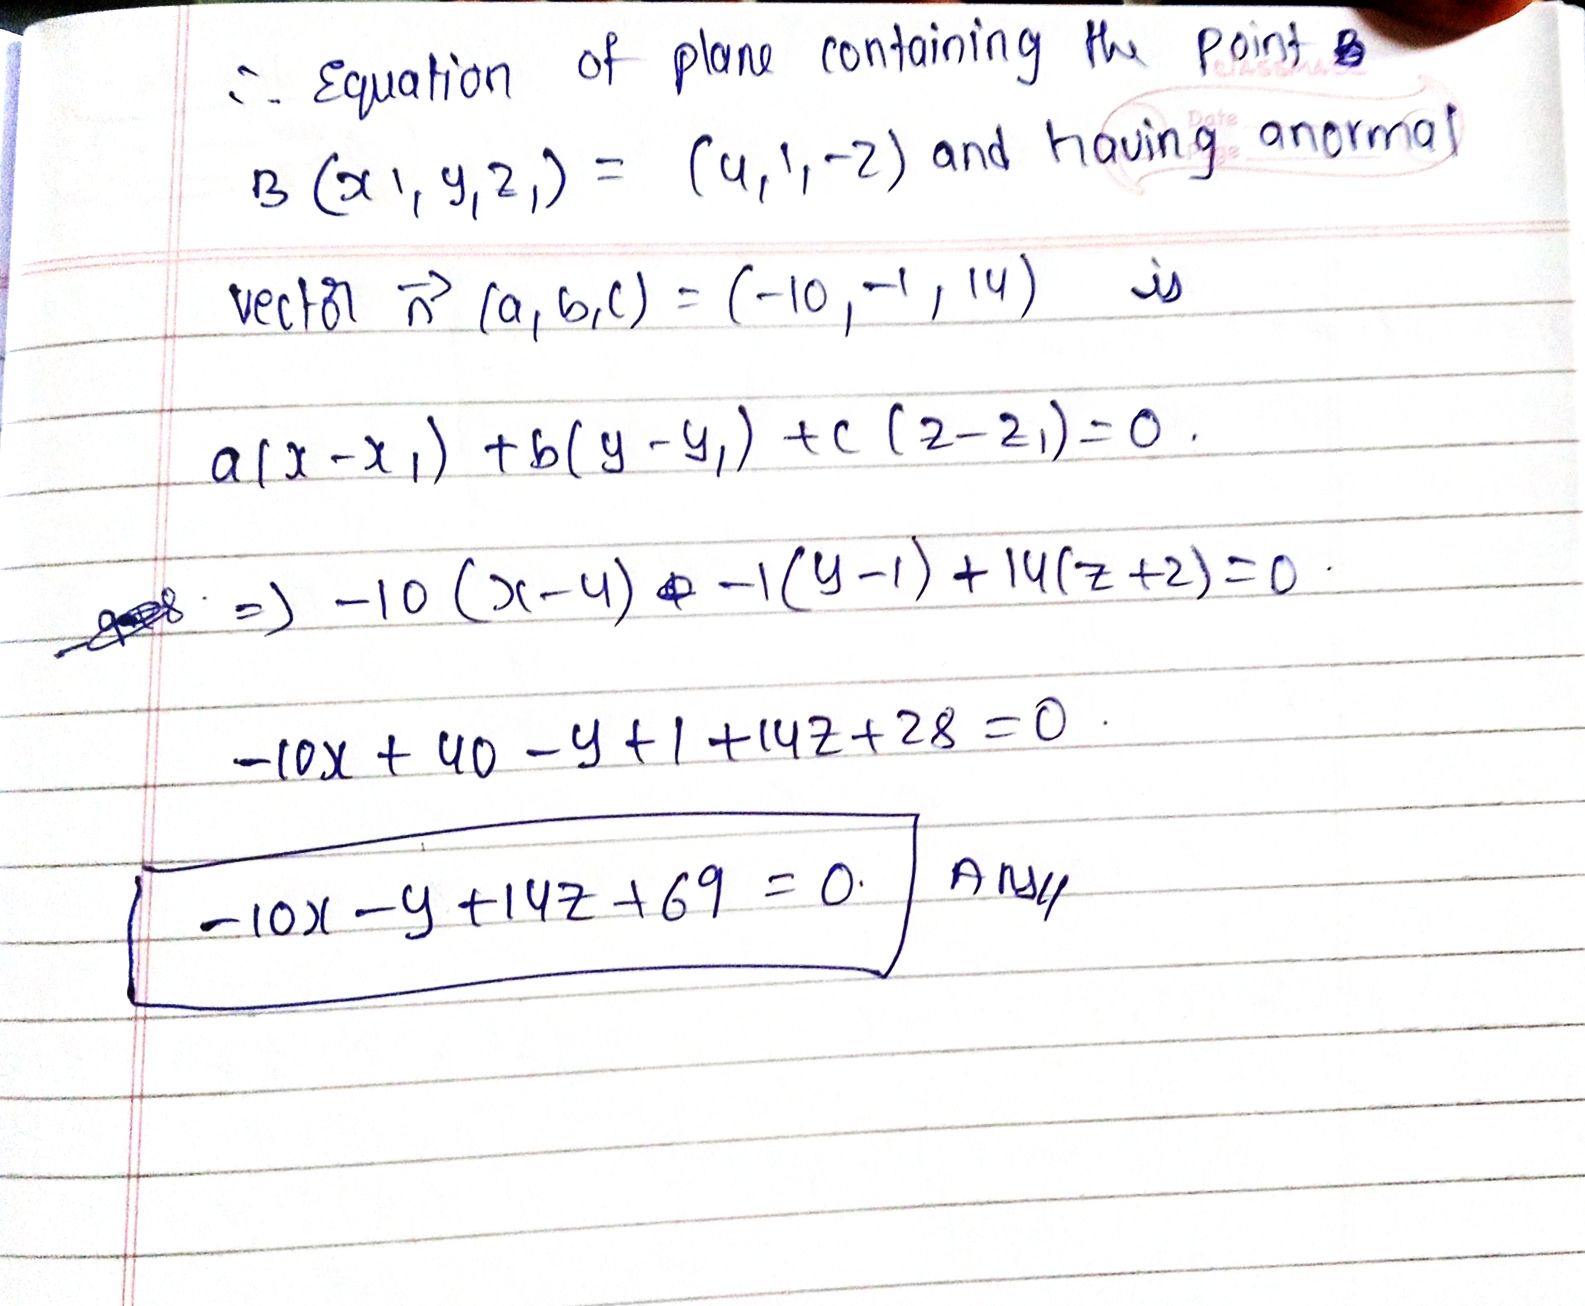 ∴ Equation of plane containing the point B
B (x1, y1, z1) = (4, 1, -2) and having anormal
vector n⃗ (a, b, c) = (-10, -1, 14) is
a(x-x1) + b(y-y1) + c(z-z1) = 0.
=> -10(x-4) -1(y-1) + 14(z+2) = 0.
-10x + 40 - y + 1 + 14z + 28 = 0.
-10x - y + 14z + 69 = 0. Ans